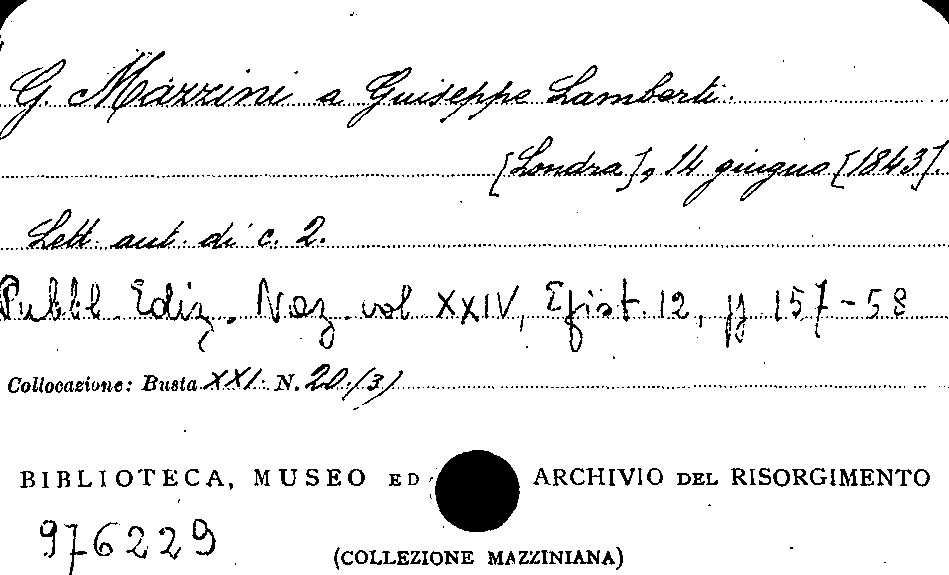 G. Mazzini a Giuseppe Lamberti.
[Londra], 14 giugno [1843].
Lett. aut. di c. 2.
Pubbl. Ediz. Naz. vol XXIV, Epist. 12, pp 157-58
Collocazione: Busta XXI. N. 20/(3)
BIBLIOTECA, MUSEO ED ARCHIVIO DEL RISORGIMENTO
976229
(COLLEZIONE MAZZINIANA)